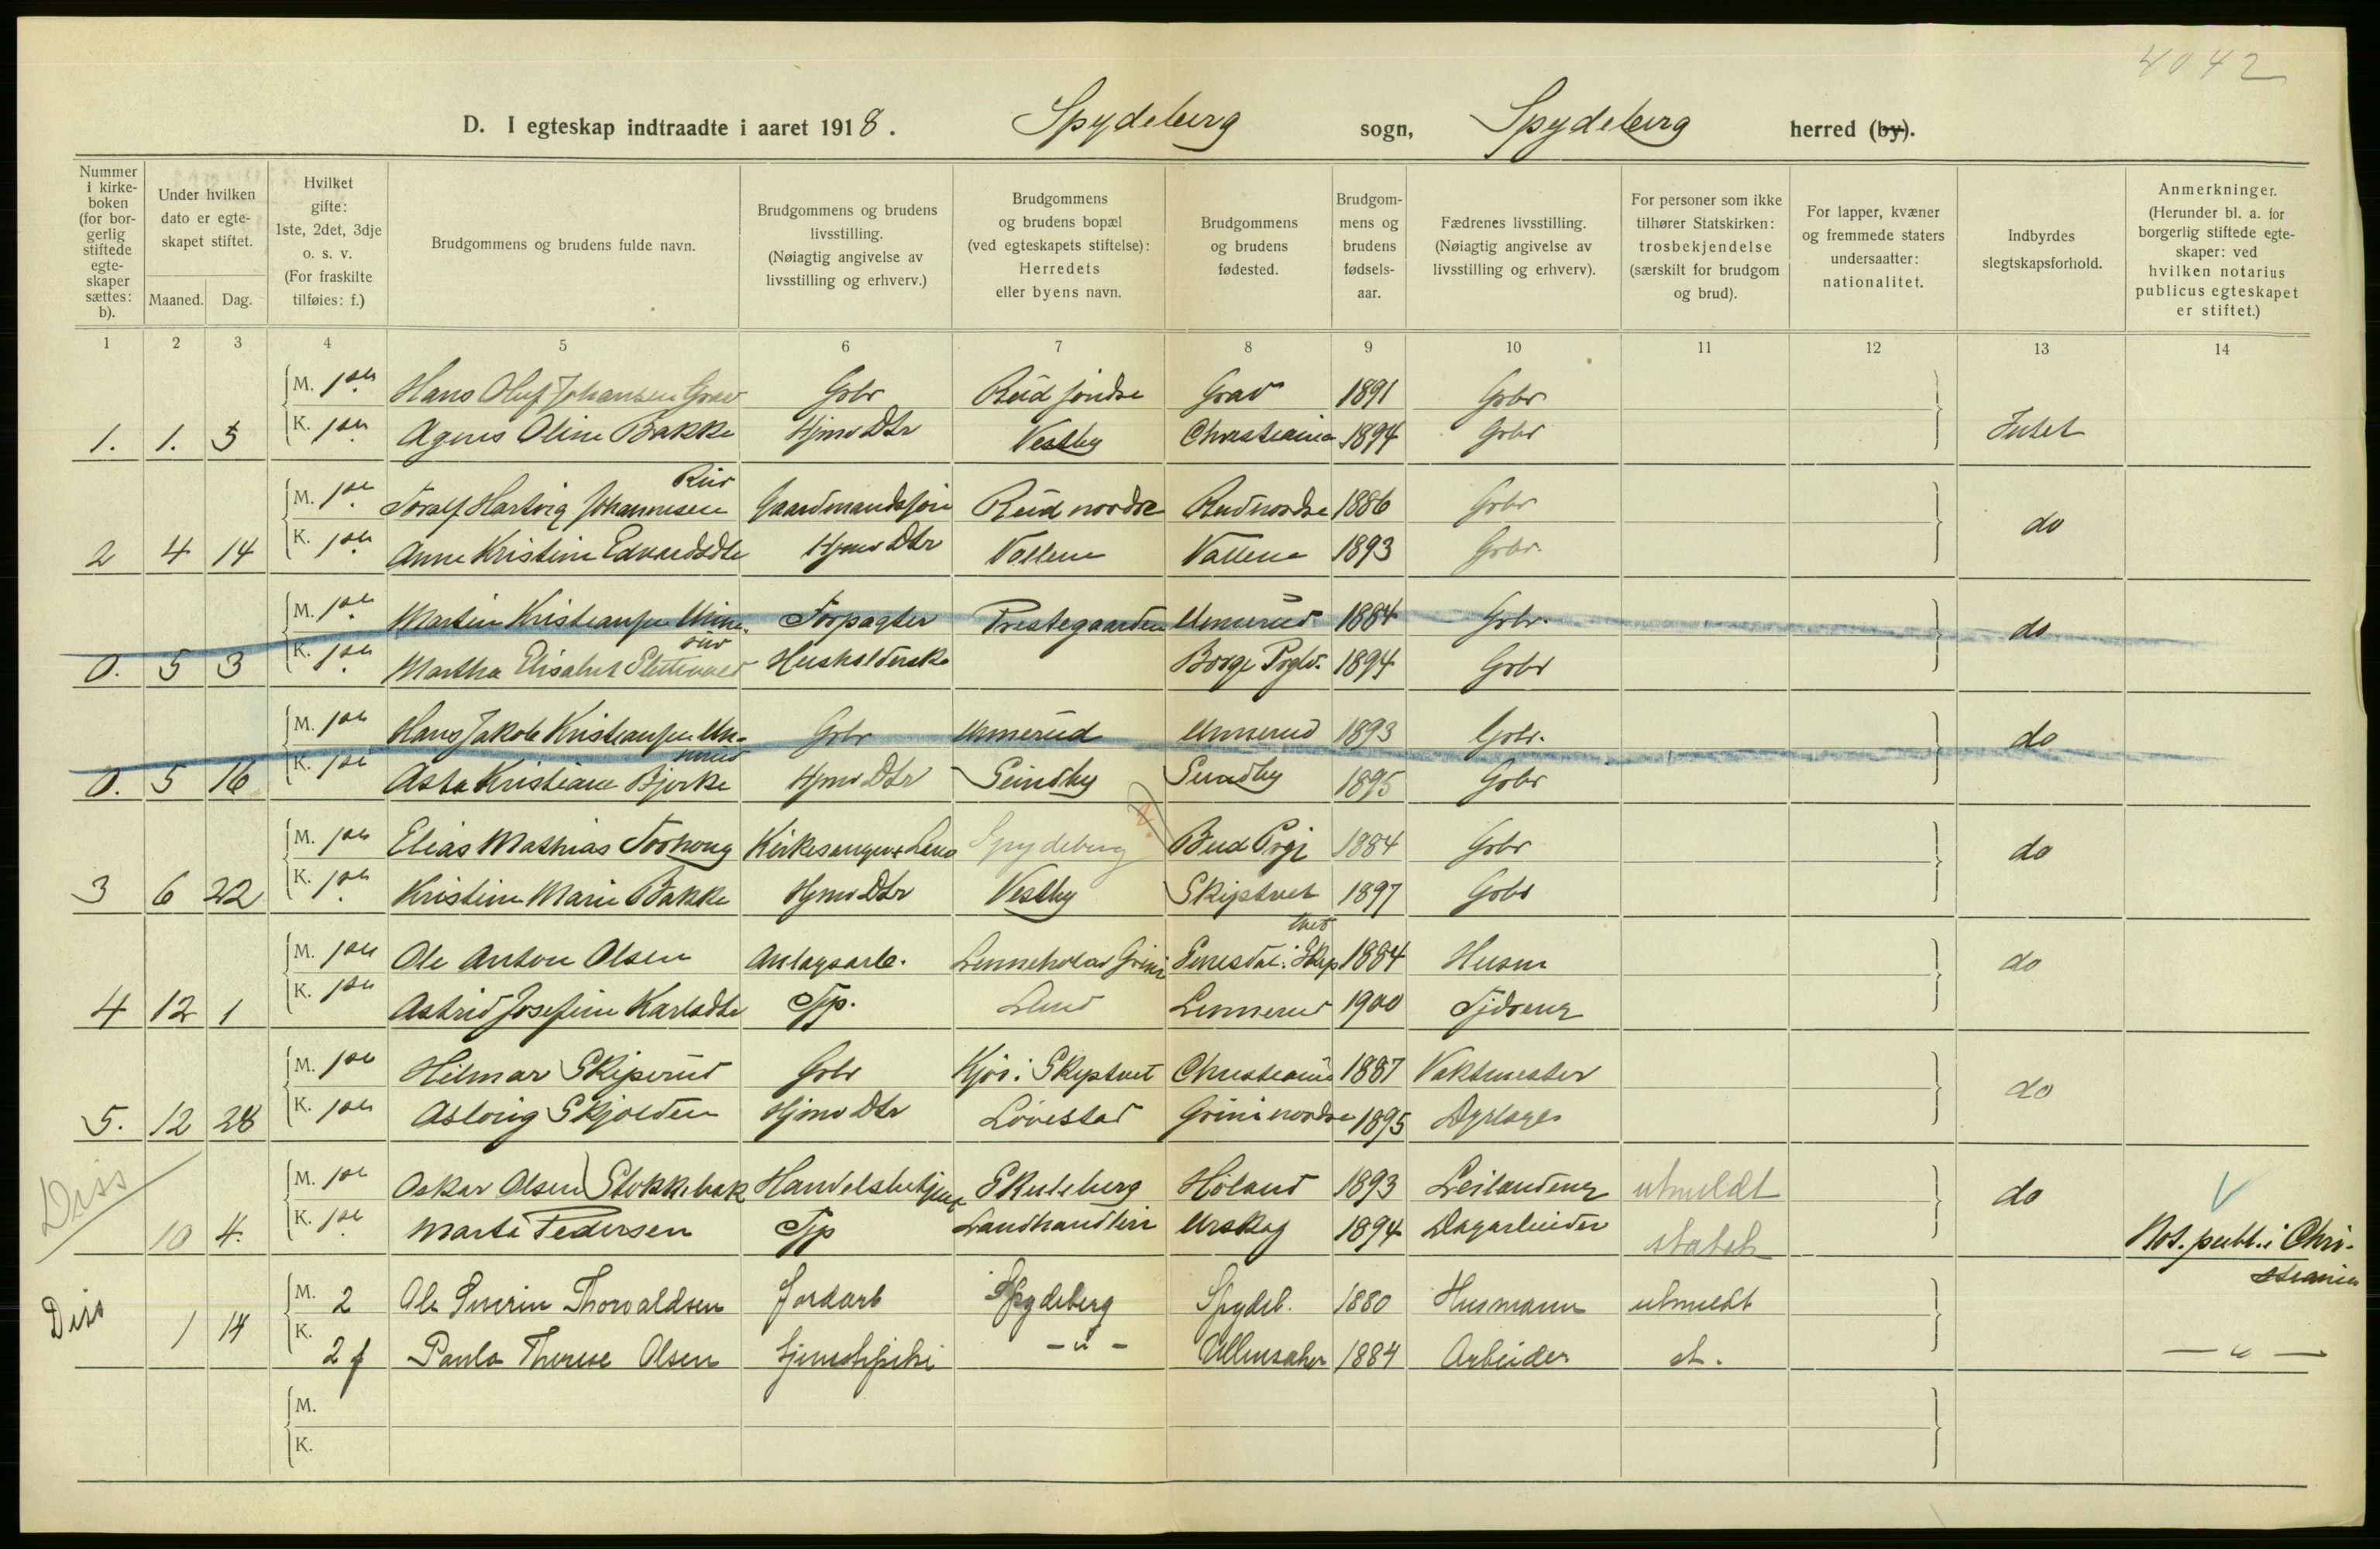 4042
D. I egteskap indtraadte i aaret 1918. Spydeberg sogn, Spydeberg herred (by).
Nummer i kirke-boken (for bor-gerlig stiftede egte-skaper sættes: b).
Under hvilken dato er egte-skapet stiftet.
Maaned. Dag.
Hvilket gifte: 1ste, 2det, 3dje o. s. v. (For fraskilte tilføies: f.)
Brudgommens og brudens fulde navn.
Brudgommens og brudens livsstilling. (Nøiagtig angivelse av livsstilling og erhverv.)
Brudgommens og brudens bopæl (ved egteskapets stiftelse): Herredets eller byens navn.
Brudgommens og brudens fødested.
Brudgom-mens og brudens fødsels-aar.
Fædrenes livsstilling. (Nøiagtig angivelse av livsstilling og erhverv).
For personer som ikke tilhører Statskirken: trosbekjendelse (særskilt for brudgom og brud).
For lapper, kvæner og fremmede staters undersaatter: nationalitet.
Indbyrdes slegtskapsforhold.
Anmerkninger. (Herunder bl. a. for borgerlig stiftede egte-skaper: ved hvilken notarius publicus egteskapet er stiftet.)
1 2 3 4 5 6 7 8 9 10 11 12 13 14
M. 1ste Hans Oluf Johansen Grav Gbr Rud søndre Grav 1891 Gbr
1. 1. 5 K. 1ste Agnes Oline Bakke Hjmv Dtr Vestby Christiania 1894 Gbr Intet
Rud
M. 1ste Toralf Hartvig Johannesen Gaardmandssøn Rud nordre Rud nordre 1886 Gbr
2 4 14 K. 1ste Anne Kristine Edvardsdtr Hjmv Dtr Vollene Vollene 1893 Gbr. do
M. 1ste Martin Kristiansen Unne- Forpagter Prestegaarden Unnerud 1884 Gbr.
rud
0. 5 3 K. 1ste Martha Elisabet Slettevold Husholderske Borge Prgld. 1894 Gbr do
M. 1ste Hans Jakob Kristiansen Un- Gbr Unnerud Unnerud 1893 Gbr.
nerud
0. 5 16 K. 1ste Asta Kristiane Bjerke Hjmv Dtr Sundby Sundby 1895 Gbr do
M. 1ste Elias Mathias Torhoug Kirkesanger & Lærer Spydeberg ? Bud Prgj 1884 Gbr
3 6 22 K. 1ste Kristine Marie Bakke Hjmv Dtr Vestby Skiptvet 1897 Gbr do
tvet
M. 1ste Ole Anton Olsen Anlægsarb. Grini i Skip 1884 Husm
4 12 1 K. 1ste Astrid Josefine Karlsdtr Tjp. Lund Lennerud 1900 do
M. 1ste Hilmar Skiperud Gbr Kjos i Skiptvet Christiania 1887 Vaktmester
5. 12 28 K. 1ste Aslaug Skjolden Hjmv Dtr Løvestad Grini nordre 1895 Dyrlæge do
Diss M. 1ste Oskar Olsen Stokkebæk Handelsbetjent Skuleberg Høland 1893 Leilænding utmeldt do
10 4. K. 1ste Marte Pedersen Tjp Landhandleri Urskog 1894 Dagarbeider statsk Not. publ. i Chri-
stiania
Diss M. 2 Ole Severin Thorvaldsen Jordarb Spydeberg Spydeb. 1880 Husmann utmeldt
1 14 K. 2 f Paula Therese Olsen tjenestepike - " - Ullensaker 1884 Arbeider st. - " -
M.
K.